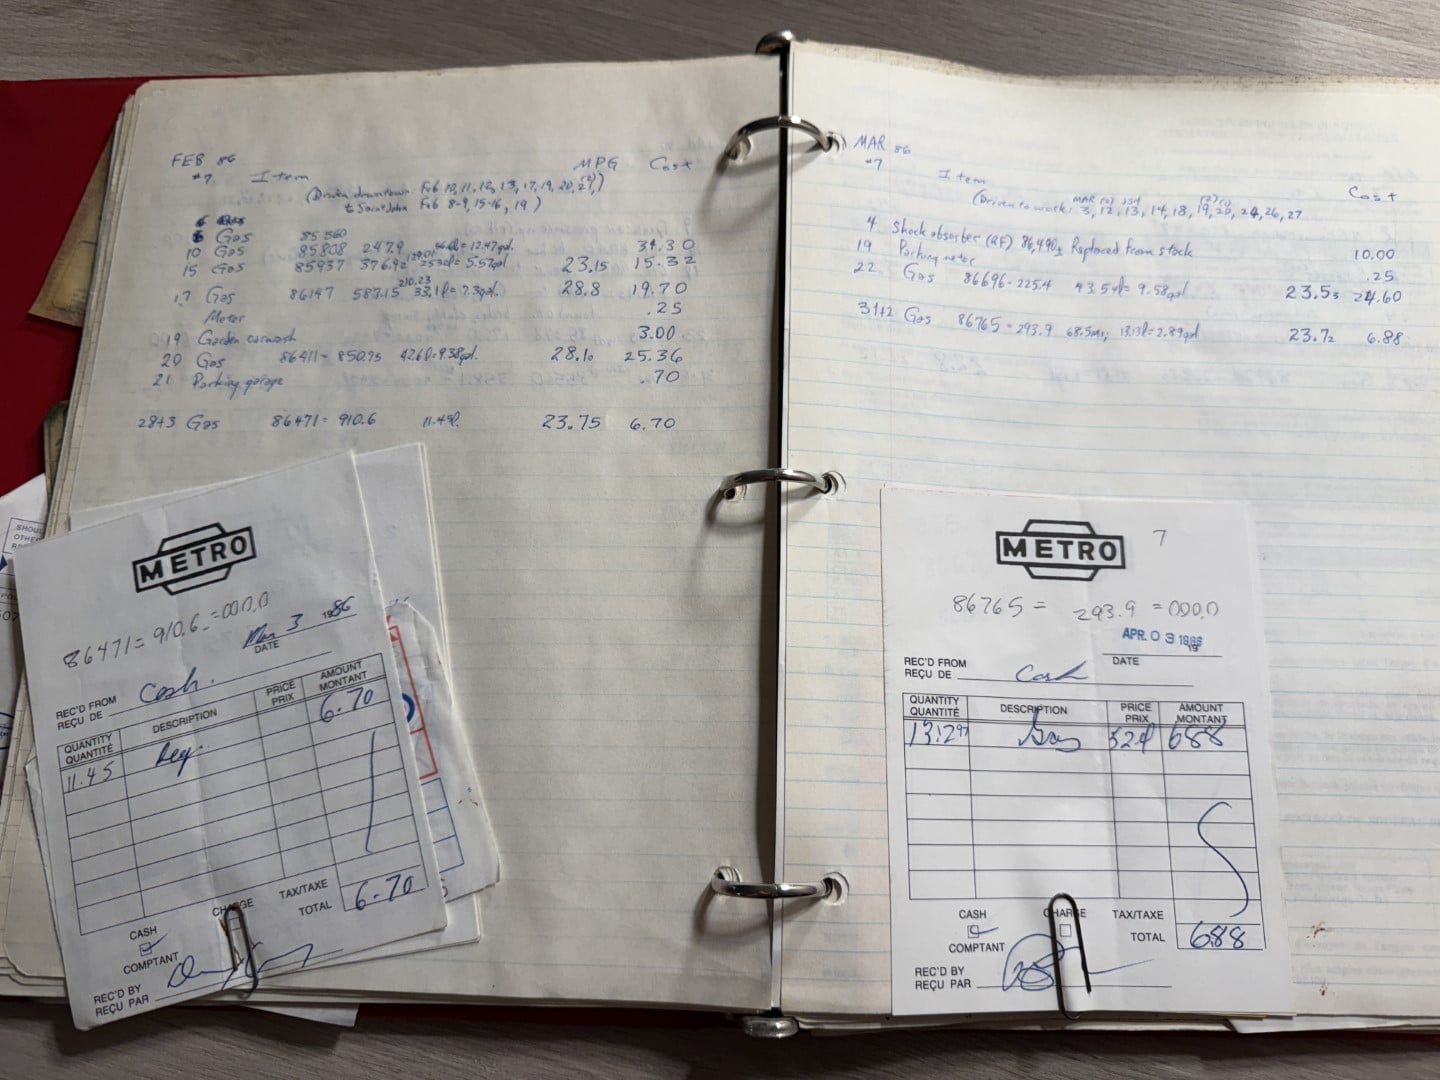 FEB 86
#7 Item MPG Cost
(Driven downtown Feb 10, 11, 12, 13, 17, 19, 20, 21,)
(2)
to Saint John Feb 8-9, 15-16, 19)
6 Gas 85560
10 Gas 85808 247.9 = 12.47gal. 34.30
15 Gas 85937 376.9 = 25.32l = 5.57gal 23.15 15.32
210.23
17 Gas 86147 587.15 33.1l = 7.3gal 28.8 19.70
Meter .25
19 Garden carwash 3.00
20 Gas 86411 = 850.75 42.6l = 9.38gal. 28.10 25.36
21 Parking garage .70
28+3 Gas 86471 = 910.6 11.45l. 23.75 6.70
METRO
86471 = 910.6 = 000.0
Mar 3 1986
DATE
REC'D FROM
REÇU DE Cash.
QUANTITY
QUANTITÉ
DESCRIPTION
PRICE
PRIX
AMOUNT
MONTANT
11.45 Reg. 6.70
TAX/TAXE
TOTAL 6.70
CASH
COMPTANT
CHARGE
REC'D BY
REÇU PAR
MAR 86
#7 Item Cost
(Driven to work: MAR 3, 12, 13, 14, 18, 19, 20, 24, 26, 27
4 Shock absorber (RF) 86,490½ Replaced from stock 10.00
19 Parking meter .25
22 Gas 86696 = 225.4 43.54l = 9.58gal 23.53 24.60
31+2 Gas 86765 = 293.9 68.5mi; 13.13l = 2.89gal 23.72 6.88
METRO
7
86765 = 293.9 = 000.0
APR. 03 1986
19
DATE
REC'D FROM
REÇU DE Cash
QUANTITY
QUANTITÉ
DESCRIPTION
PRICE
PRIX
AMOUNT
MONTANT
Gas 688
TAX/TAXE
TOTAL 688
CASH
COMPTANT
CHARGE
REC'D BY
REÇU PAR